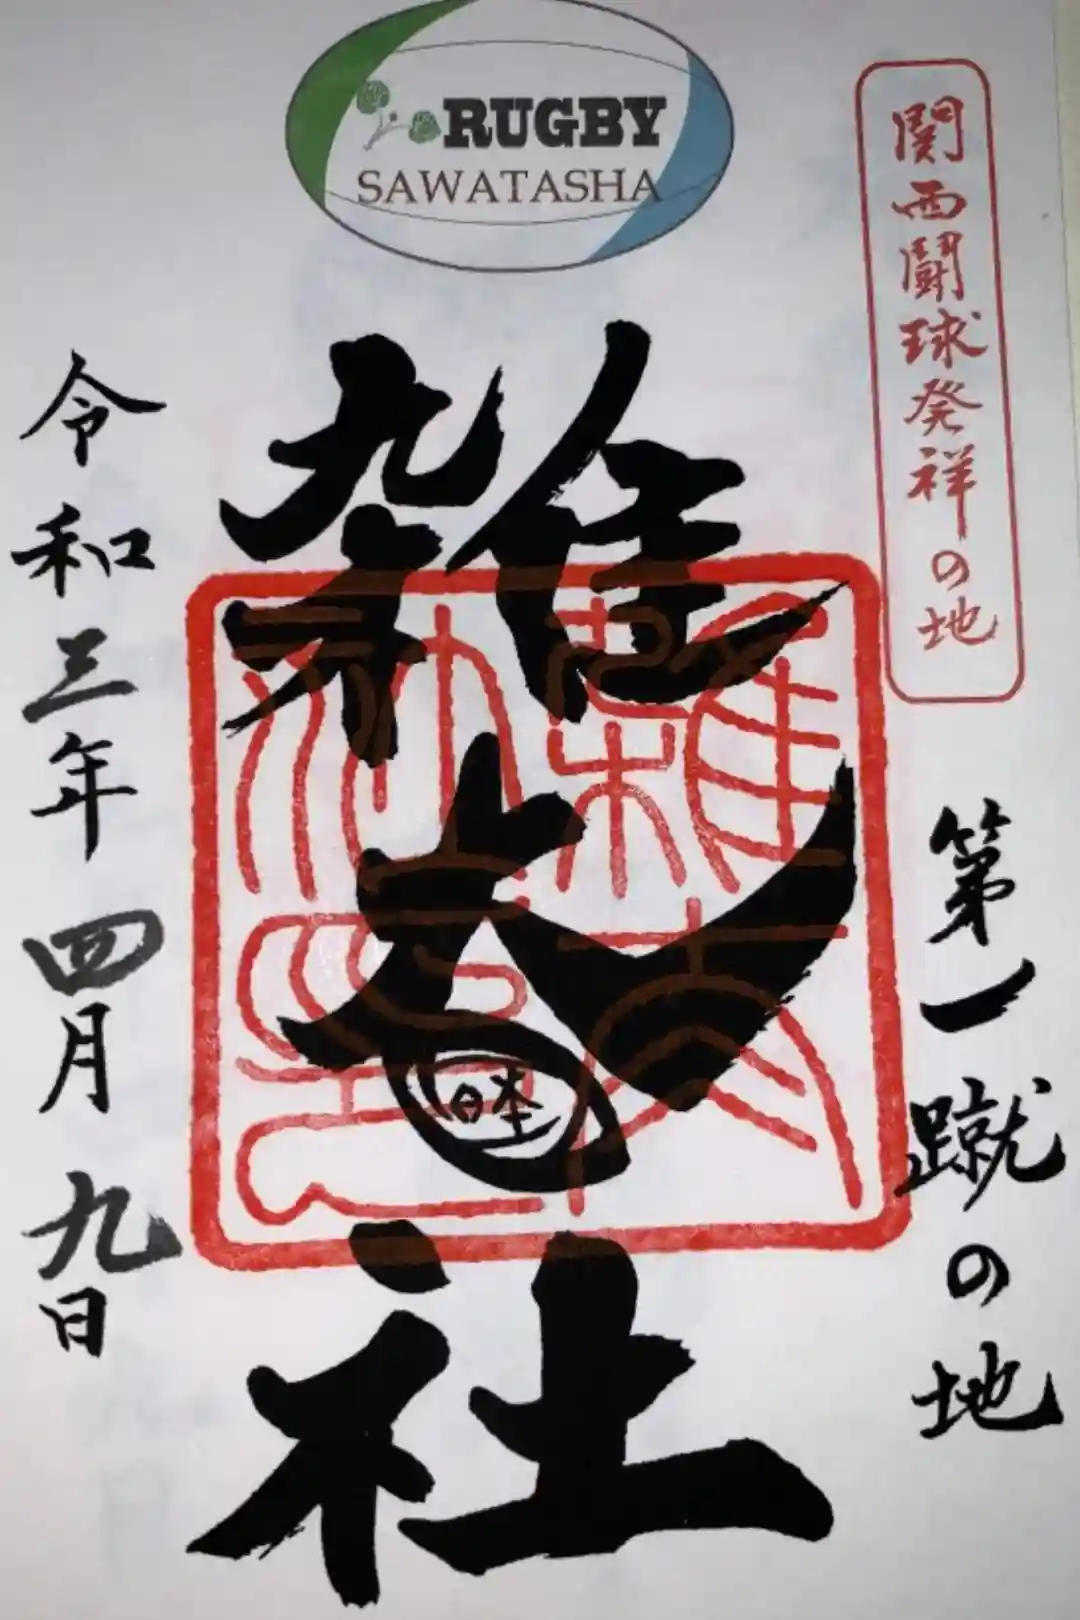 RUGBY
SAWATASHA
関西闘球発祥の地
第一蹴の地
雑太社
日本
令和三年四月九日